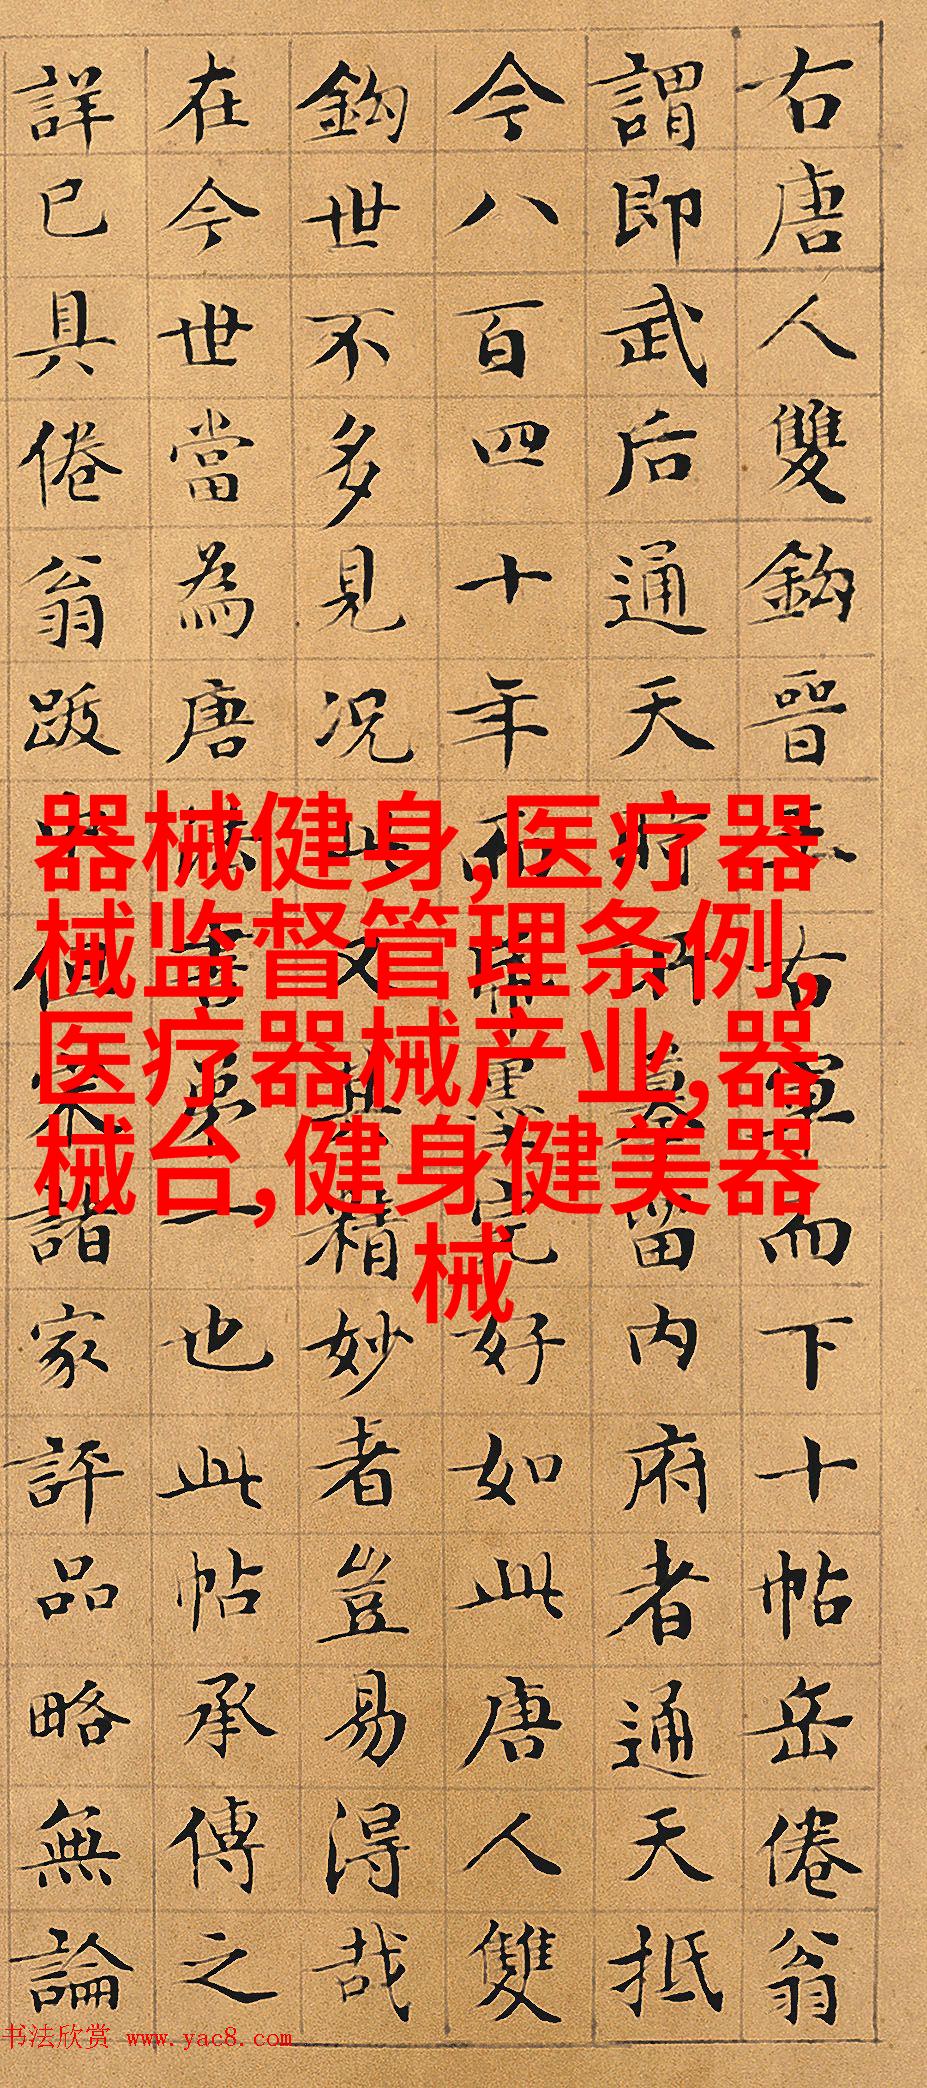 右唐人雙鈎晉王右軍而下十帖岳倦翁
謂即武后通天時所摹留內府者通天抵
今八百四十年而墨完好如此唐人雙
鈎世不多見况此又其精妙者豈易得哉
在今世當為唐法書第一也此帖承傳之
詳已具倦翁跋諸家評品略無論
器械健身,医疗器
械监督管理条例,
医疗器械产业,器
械台,健身健美器
械
书法欣赏 www.yac8.com